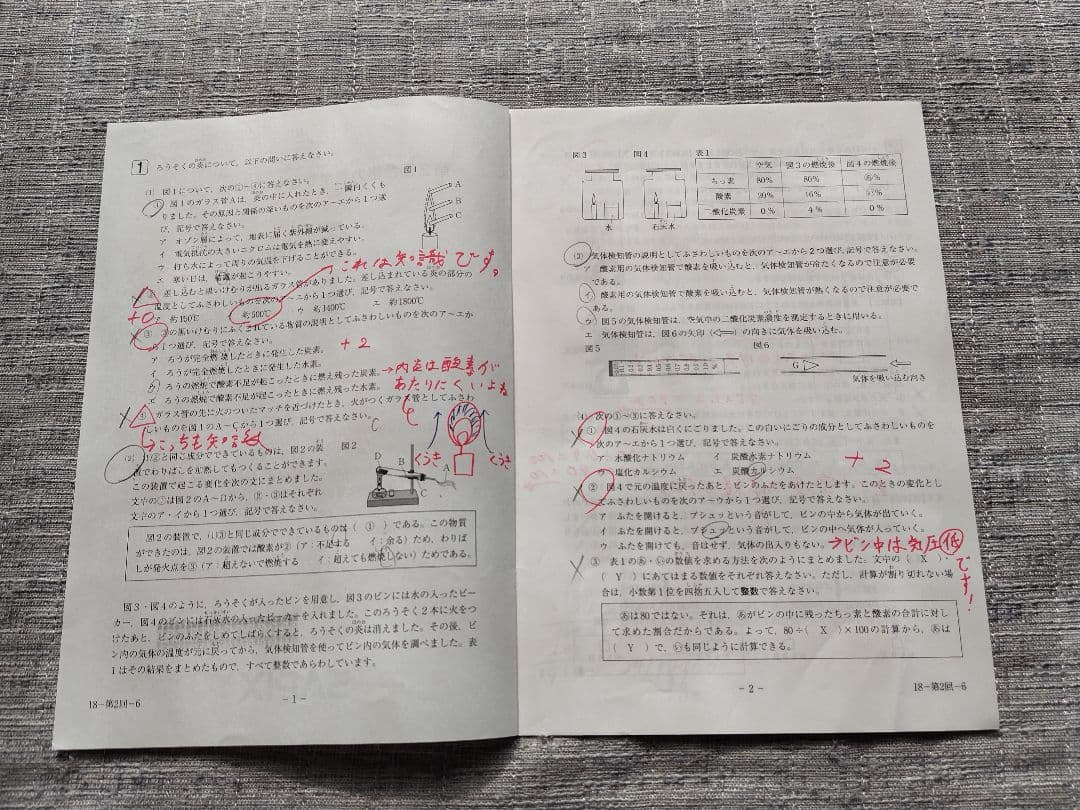 1 ろうそくの炎について、以下の問いに答えなさい。
(1) 図1について、次の①〜④に答えなさい。
図1
① 図1のガラス管Aは、炎の中に入れたとき、一面白くくも
りました。その原因と関係の深いものを次のア〜エから1つ選
び、記号で答えなさい。
ア オゾン層によって、地表に届く紫外線が減っている。
イ 電気抵抗の大きいニクロムは電気を熱に変えやすい。
ウ 打ち水によって周りの気温を下げることができる。
エ 寒い日は、結露が起こりやすい。
A
B
C
これは知識です。
② 差し込むと黒いけむりが出るガラス管がありました。差し込まれている炎の部分の
温度としてふさわしいものを次のア〜エから1つ選び、記号で答えなさい。
ア 約150℃ イ 約500℃ ウ 約1400℃ エ 約1800℃
③ ②の黒いけむりにふくまれている物質の説明としてふさわしいものを次のア〜エか
ら1つ選び、記号で答えなさい。
+2
ア ろうが完全燃焼したときに発生した炭素。
イ ろうが完全燃焼したときに発生した水素。
ウ ろうの燃焼で酸素不足が起こったときに燃え残った炭素。
エ ろうの燃焼で酸素不足が起こったときに燃え残った水素。
→内炎は酸素が
あたりにくいよね
④ ガラス管の先に火のついたマッチを近づけたとき、火がつくガラス管としてふさわ
しいものを図1のA〜Cから1つ選び、記号で答えなさい。
C
→こっちも知識
くうき
くうき
(2) (1)③と同じ成分でできているものは、図2の装
置でわりばしを加熱してもつくることができます。
この装置で起こる変化を次の文にまとめました。
文中の①は図2のA〜Dから、②・③はそれぞれ
文中のア・イから1つ選び、記号で答えなさい。
図2
D
B
A
C
図2の装置で、(1)③と同じ成分でできているものは(①)である。この物質
ができたのは、図2の装置では酸素が②(ア:不足する イ:余る)ため、わりば
しが発火点を③(ア:超えないで燃焼する イ:超えても燃焼しない)ためである。
図3・図4のように、ろうそくが入ったビンを用意し、図3のビンには水の入ったビー
カー、図4のビンには石灰水の入ったビーカーを入れました。このろうそく2本に火をつ
けたあと、ビンのふたをしめてしばらくすると、ろうそくの炎は消えました。その後、ビ
ン内の気体の温度が元に戻ってから、気体検知管を使ってビン内の気体を調べました。表
1はその結果をまとめたもので、すべて整数であらわしています。
18－第2回－6
－1－
図3 図4 表1
水
石灰水
空気 図3の燃焼後 図4の燃焼後
ちっ素 80% 80% あ%
酸素 20% 16% い%
二酸化炭素 0% 4% 0%
(3) 気体検知管の説明としてふさわしいものを次のア〜エから2つ選び、記号で答えなさい。
ア 酸素用の気体検知管で酸素を吸い込むと、気体検知管が冷たくなるので注意が必要
である。
イ 酸素用の気体検知管で酸素を吸い込むと、気体検知管が熱くなるので注意が必要で
ある。
ウ 図5の気体検知管は、空気中の二酸化炭素濃度を測定するときに用いる。
エ 気体検知管は、図6の矢印(⇐)の向きに気体を吸い込む。
図5
図6
G
気体を吸い込む向き
(4) 次の①〜③に答えなさい。
① 図4の石灰水は白くにごりました。この白いにごりの成分としてふさわしいものを
次のア〜エから1つ選び、記号で答えなさい。
ア 水酸化ナトリウム イ 炭酸水素ナトリウム
ウ 塩化カルシウム エ 炭酸カルシウム
+2
② 図4で元の温度に戻ったあと、ビンのふたをあけたとします。このときの変化とし
てふさわしいものを次のア〜ウから1つ選び、記号で答えなさい。
ア ふたを開けると、プシュッという音がして、ビンの中から気体が出ていく。
イ ふたを開けると、プシュッという音がして、ビンの中へ気体が入っていく。
ウ ふたを開けても、音はせず、気体の出入りもない。
→ビン中は気圧低です!
③ 表1のあ・いの数値を求める方法を次のようにまとめました。文中の(X)
(Y)にあてはまる数値をそれぞれ答えなさい。ただし、計算が割り切れない場
合は、小数第1位を四捨五入して整数で答えなさい。
あは80ではない。それは、あがビンの中に残ったちっ素と酸素の合計に対し
て求めた割合だからである。よって、80÷(X)×100の計算から、あは
(Y)で、いも同じように計算できる。
－2－
18－第2回－6